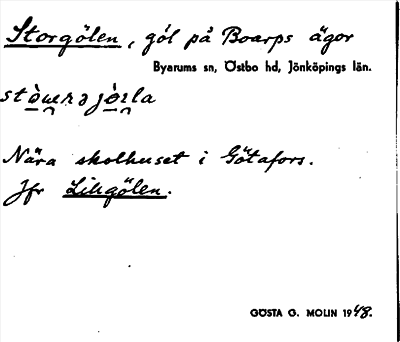 Storgölen, göl på Boarps ägor
Byarums sn, Östbo hd, Jönköpings län.
Nära skolhuset i Götafors.
Jfr Lillgölen.
GÖSTA G. MOLIN 1948.